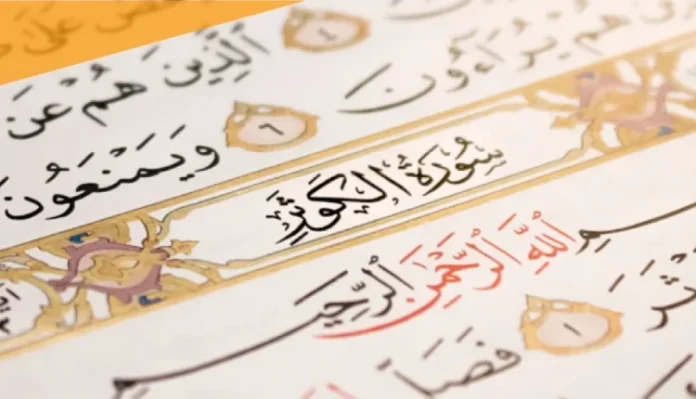 عَلَىٰ
٤ ٱلَّذِينَ هُمْ عَن
هُمْ يُرَآءُونَ ٦ وَيَمْنَعُونَ
سُورَةُ الكَوثَرِ
ٱللَّهِ ٱلرَّحْمَٰنِ ٱلرَّحِيمِ
١